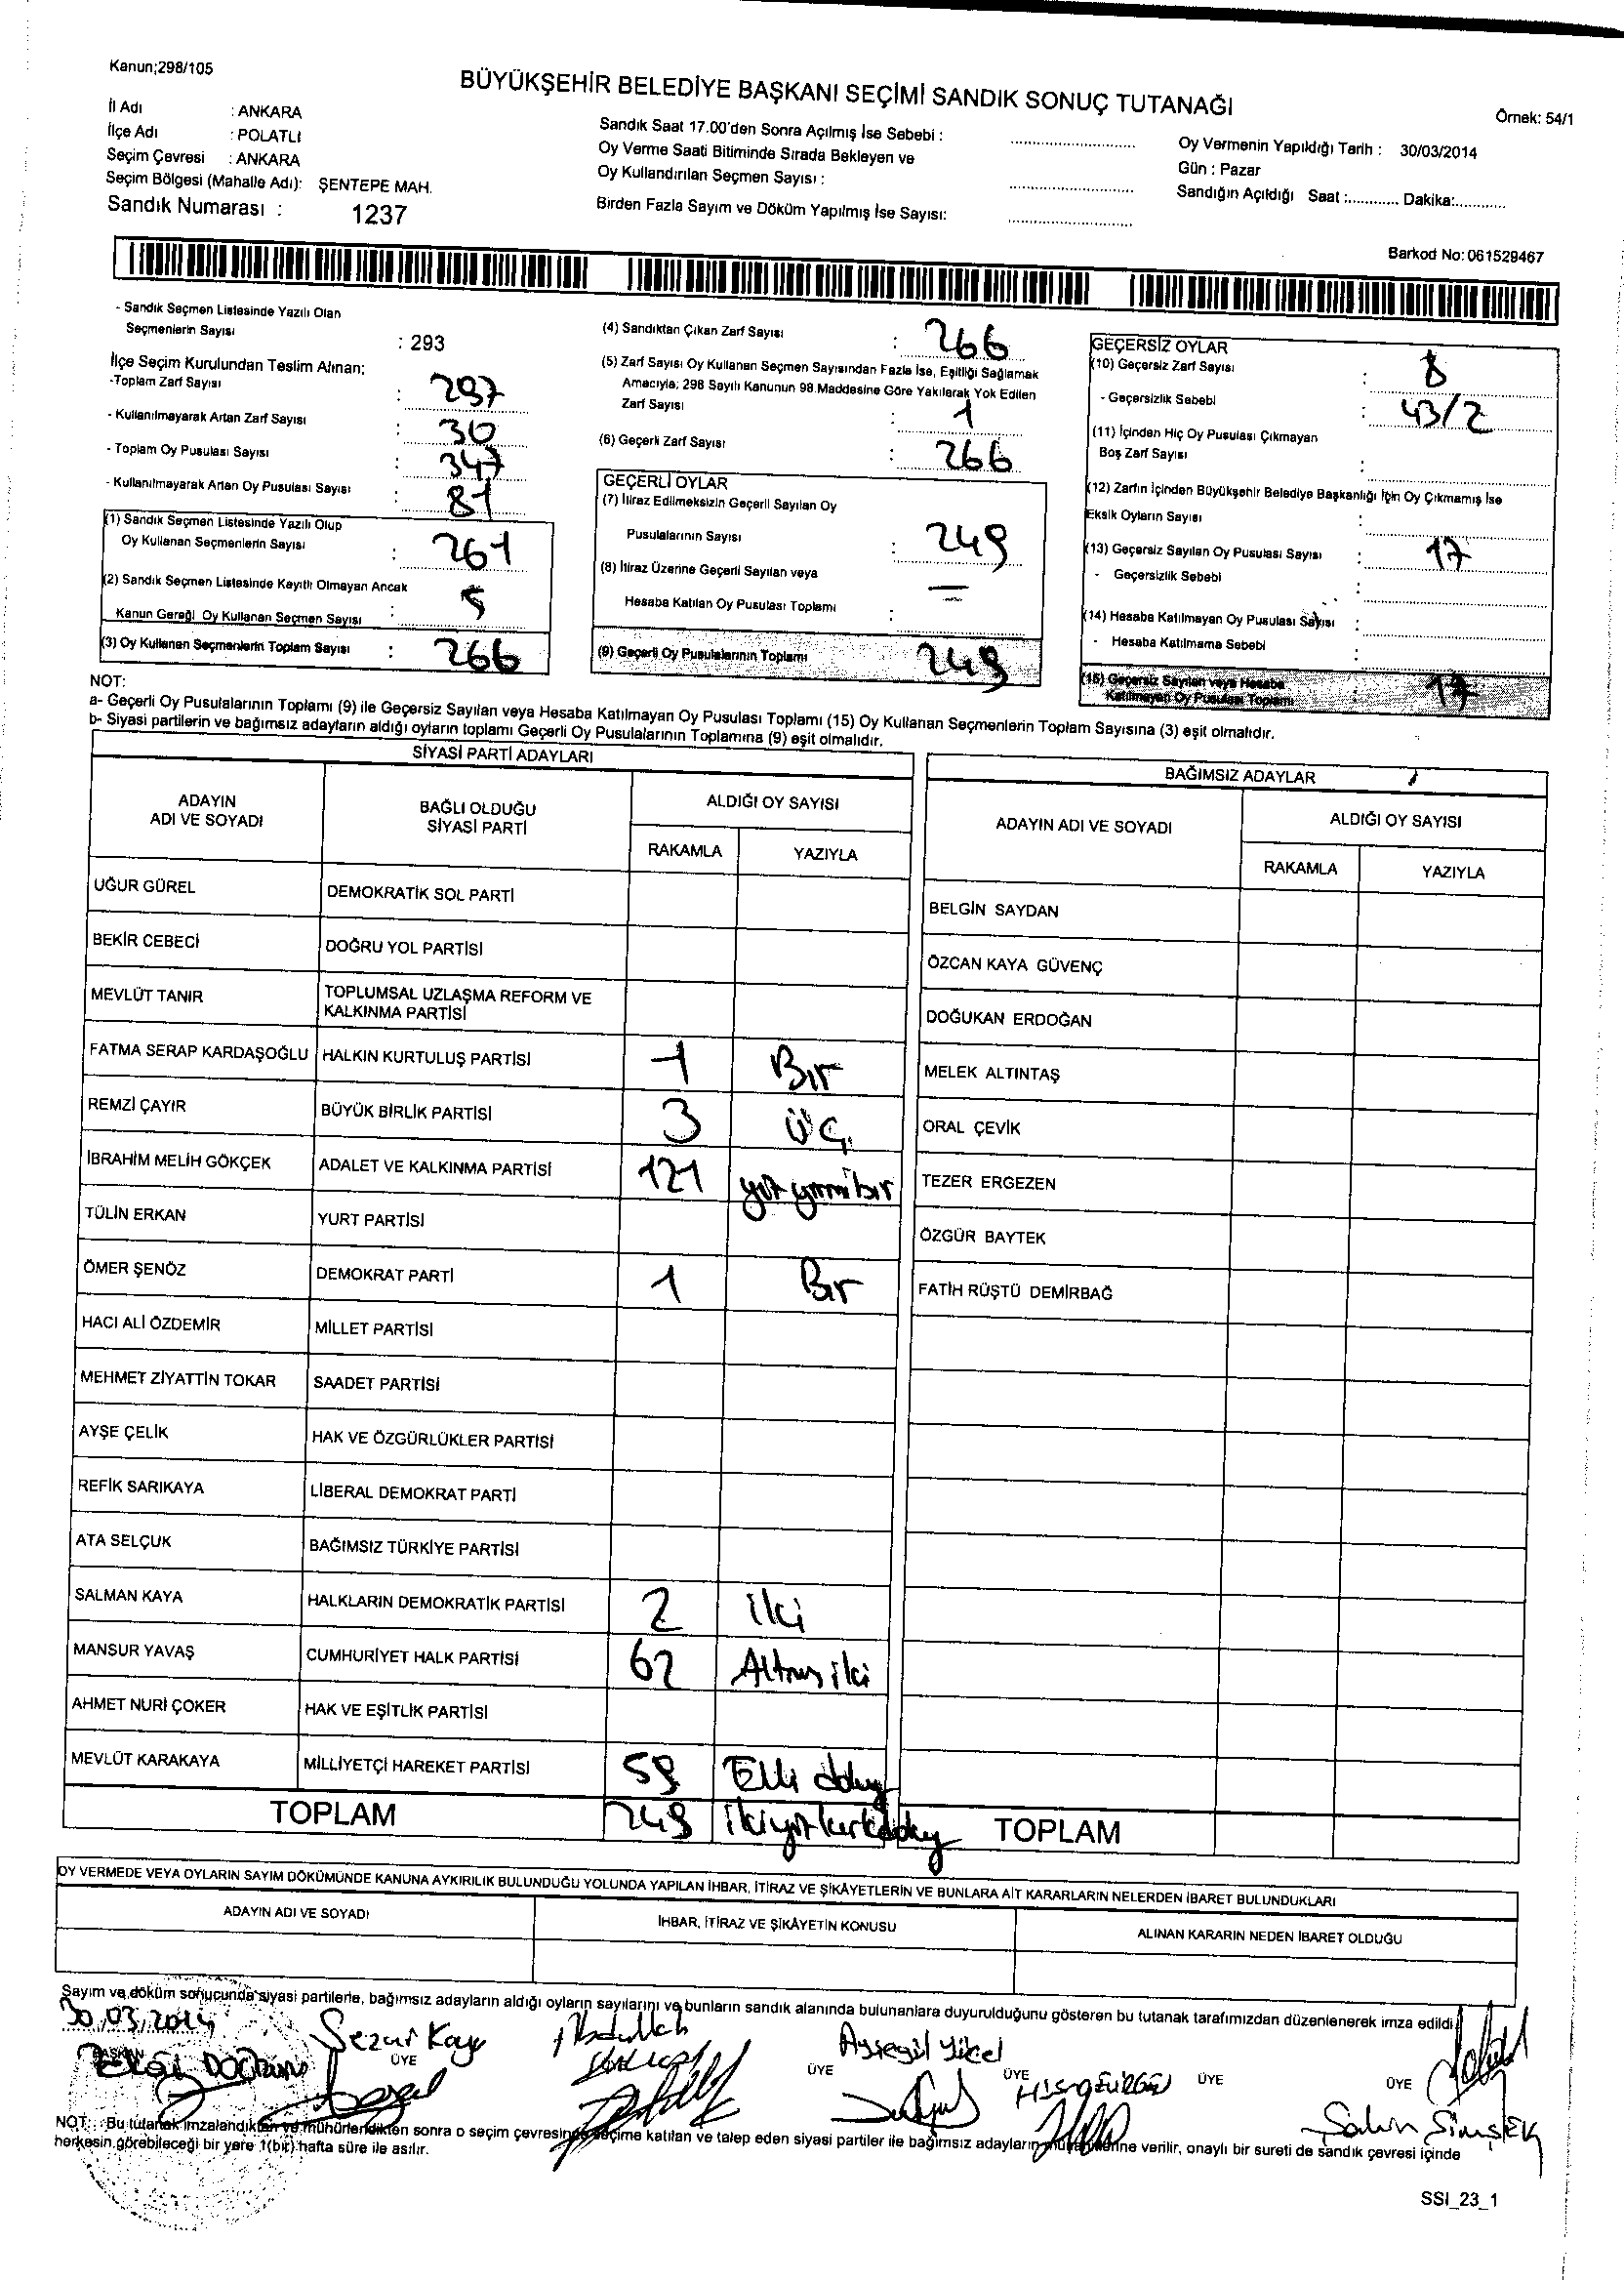 Kanun;298/105
BÜYÜKŞEHİR BELEDİYE BAŞKANI SEÇİMİ SANDIK SONUÇ TUTANAĞI
Örnek: 54/1
İl Adı : ANKARA
İlçe Adı : POLATLI
Seçim Çevresi : ANKARA
Seçim Bölgesi (Mahalle Adı): ŞENTEPE MAH.
Sandık Numarası : 1237
Sandık Saat 17.00'den Sonra Açılmış İse Sebebi :
Oy Verme Saati Bitiminde Sırada Bekleyen ve
Oy Kullandırılan Seçmen Sayısı :
Birden Fazla Sayım ve Döküm Yapılmış İse Sayısı:
Oy Vermenin Yapıldığı Tarih : 30/03/2014
Gün : Pazar
Sandığın Açıldığı Saat :............ Dakika:............
Barkod No: 061529467
- Sandık Seçmen Listesinde Yazılı Olan
Seçmenlerin Sayısı : 293
İlçe Seçim Kurulundan Teslim Alınan:
-Toplam Zarf Sayısı : 297
- Kullanılmayarak Artan Zarf Sayısı : 30
- Toplam Oy Pusulası Sayısı : 347
- Kullanılmayarak Artan Oy Pusulası Sayısı : 81
(1) Sandık Seçmen Listesinde Yazılı Olup
Oy Kullanan Seçmenlerin Sayısı : 261
(2) Sandık Seçmen Listesinde Kayıtlı Olmayan Ancak
Kanun Gereği Oy Kullanan Seçmen Sayısı : 5
(3) Oy Kullanan Seçmenlerin Toplam Sayısı : 266
(4) Sandıktan Çıkan Zarf Sayısı : 266
(5) Zarf Sayısı Oy Kullanan Seçmen Sayısından Fazla İse, Eşitliği Sağlamak
Amacıyla; 298 Sayılı Kanunun 98.Maddesine Göre Yakılarak Yok Edilen
Zarf Sayısı : 1
(6) Geçerli Zarf Sayısı : 266
GEÇERLİ OYLAR
(7) İtiraz Edilmeksizin Geçerli Sayılan Oy
Pusulalarının Sayısı : 249
(8) İtiraz Üzerine Geçerli Sayılan veya
Hesaba Katılan Oy Pusulası Toplamı : —
(9) Geçerli Oy Pusulalarının Toplamı 249
GEÇERSİZ OYLAR
(10) Geçersiz Zarf Sayısı : 8
- Geçersizlik Sebebi : 43/2
(11) İçinden Hiç Oy Pusulası Çıkmayan
Boş Zarf Sayısı :
(12) Zarfın İçinden Büyükşehir Belediye Başkanlığı İçin Oy Çıkmamış İse
Eksik Oyların Sayısı :
(13) Geçersiz Sayılan Oy Pusulası Sayısı : 17
- Geçersizlik Sebebi :
(14) Hesaba Katılmayan Oy Pusulası Sayısı :
- Hesaba Katılmama Sebebi :
(15) Geçersiz Sayılan veya Hesaba
Katılmayan Oy Pusulası Toplamı : 17
NOT:
a- Geçerli Oy Pusulalarının Toplamı (9) ile Geçersiz Sayılan veya Hesaba Katılmayan Oy Pusulası Toplamı (15) Oy Kullanan Seçmenlerin Toplam Sayısına (3) eşit olmalıdır.
b- Siyasi partilerin ve bağımsız adayların aldığı oyların toplamı Geçerli Oy Pusulalarının Toplamına (9) eşit olmalıdır.
SİYASİ PARTİ ADAYLARI
ADAYIN ADI VE SOYADI | BAĞLI OLDUĞU SİYASİ PARTİ | ALDIĞI OY SAYISI
RAKAMLA | YAZIYLA
UĞUR GÜREL | DEMOKRATİK SOL PARTİ
BEKİR CEBECİ | DOĞRU YOL PARTİSİ
MEVLÜT TANIR | TOPLUMSAL UZLAŞMA REFORM VE KALKINMA PARTİSİ
FATMA SERAP KARDAŞOĞLU | HALKIN KURTULUŞ PARTİSİ | 1 | Bir
REMZİ ÇAYIR | BÜYÜK BİRLİK PARTİSİ | 3 | üÇ
İBRAHİM MELİH GÖKÇEK | ADALET VE KALKINMA PARTİSİ | 121 | yüz yirmi bir
TÜLİN ERKAN | YURT PARTİSİ
ÖMER ŞENÖZ | DEMOKRAT PARTİ | 1 | Bir
HACI ALİ ÖZDEMİR | MİLLET PARTİSİ
MEHMET ZİYATTİN TOKAR | SAADET PARTİSİ
AYŞE ÇELİK | HAK VE ÖZGÜRLÜKLER PARTİSİ
REFİK SARIKAYA | LİBERAL DEMOKRAT PARTİ
ATA SELÇUK | BAĞIMSIZ TÜRKİYE PARTİSİ
SALMAN KAYA | HALKLARIN DEMOKRATİK PARTİSİ | 2 | iki
MANSUR YAVAŞ | CUMHURİYET HALK PARTİSİ | 62 | Altmış iki
AHMET NURİ ÇOKER | HAK VE EŞİTLİK PARTİSİ
MEVLÜT KARAKAYA | MİLLİYETÇİ HAREKET PARTİSİ | 59 | Elli dokuz
TOPLAM | 249 | ikiyüz kırkdokuz
BAĞIMSIZ ADAYLAR
ADAYIN ADI VE SOYADI | ALDIĞI OY SAYISI
RAKAMLA | YAZIYLA
BELGİN SAYDAN
ÖZCAN KAYA GÜVENÇ
DOĞUKAN ERDOĞAN
MELEK ALTINTAŞ
ORAL ÇEVİK
TEZER ERGEZEN
ÖZGÜR BAYTEK
FATİH RÜŞTÜ DEMİRBAĞ
TOPLAM
OY VERMEDE VEYA OYLARIN SAYIM DÖKÜMÜNDE KANUNA AYKIRILIK BULUNDUĞU YOLUNDA YAPILAN İHBAR, İTİRAZ VE ŞİKÂYETLERİN VE BUNLARA AİT KARARLARIN NELERDEN İBARET BULUNDUKLARI
ADAYIN ADI VE SOYADI | İHBAR, İTİRAZ VE ŞİKÂYETİN KONUSU | ALINAN KARARIN NEDEN İBARET OLDUĞU
Sayım ve döküm sonucunda siyasi partilerle, bağımsız adayların aldığı oyların sayılarını ve bunların sandık alanında bulunanlara duyurulduğunu gösteren bu tutanak tarafımızdan düzenlenerek imza edildi.
30.03.2014
BAŞKAN
Sezai Kaya ÜYE
Abdullah
Ayşegül Yücel ÜYE
ÜYE
ÜYE
ÜYE
Şahin ŞimşEK
NOT: Bu tutanak imzalandıktan ve mühürlendikten sonra o seçim çevresinde seçime katılan ve talep eden siyasi partiler ile bağımsız adayların müşahitlerine verilir, onaylı bir sureti de sandık çevresi içinde
herkesin görebileceği bir yere 1(bir) hafta süre ile asılır.
SSI_23_1